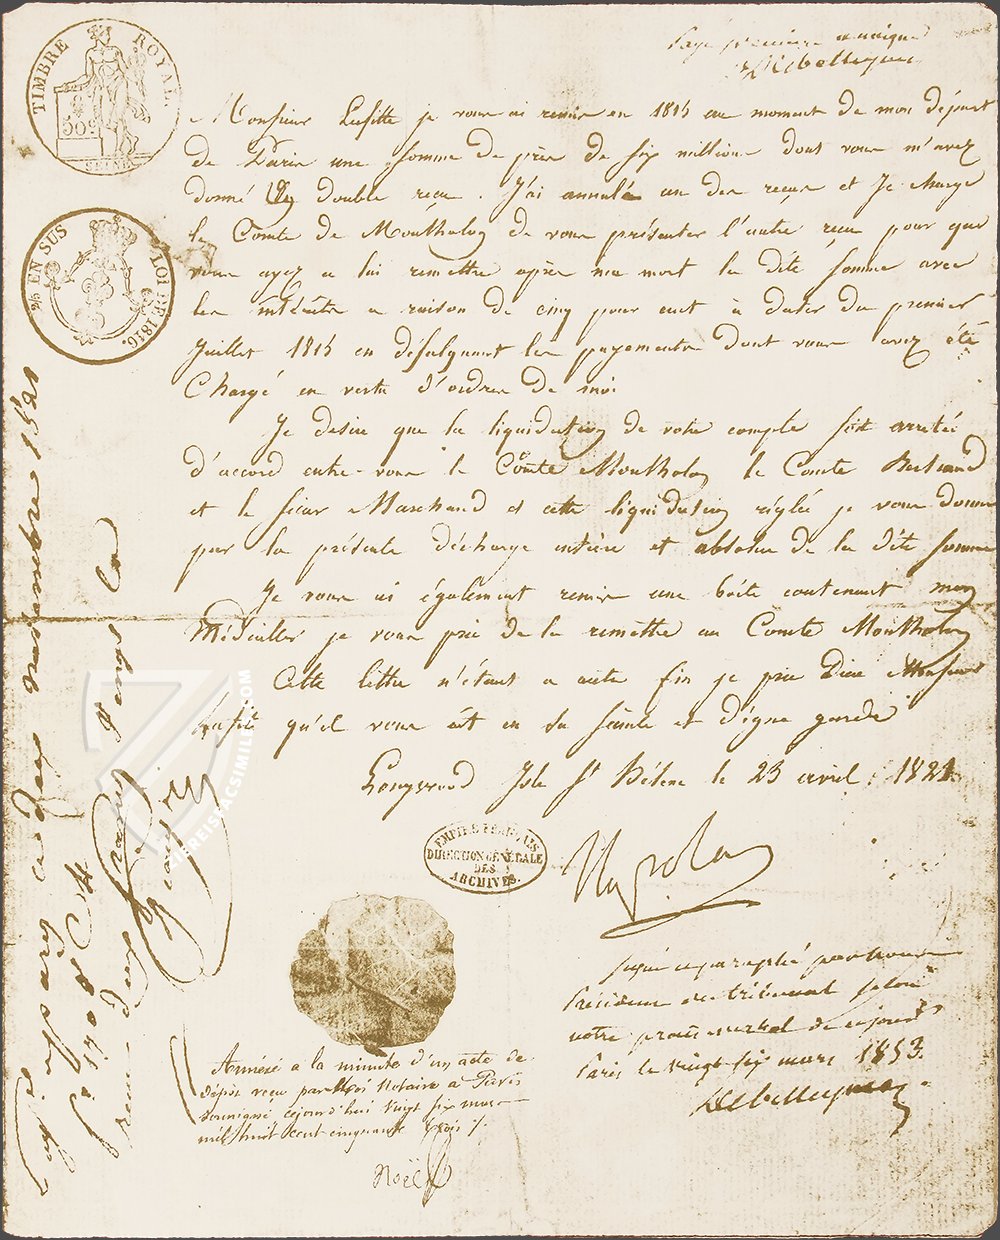 TIMBRE ROYAL
50c
SEINE
2/5 EN SUS
LOI DE 1816.
Page première et unique
DeBelleyme
Monsieur Lafitte je vous ai remis en 1815 au moment de mon départ
de Paris une somme de près de six millions dont vous m'avez
donné un double reçu. J'ai annulé un des reçus et Je charge
le Comte de Montholon de vous présenter l'autre reçu pour que
vous ayez a lui remettre après ma mort la dite somme avec
les intérêts a raison de cinq pour cent à dater du premier
Juillet 1815 en défalquant les payements dont vous avez été
Chargé en vertu d'ordres de moi
Je desire que la liquidation de votre compte soit arretée
d'accord entre-vous le Comte Montholon le Comte Bertrand
et le sieur Marchand et cette liquidation réglée je vous donne
par la présente décharge entière et absolue de la dite somme
Je vous ai également remis une boëte contenant mon
Médailler je vous prie de la remettre au Comte Montholon
Cette lettre n'étant a autre fin je prie Dieu Monsieur
Lafitte qu'il vous ait en sa sainte et digne garde
Longwood Isle St Hélène le 25 avril 1821.
Napoléon
EMPIRE FRANÇAIS
DIRECTION GÉNÉRALE
DES
ARCHIVES.
signé et paraphé par nous
Président du tribunal selon
notre procès verbal de cejourd'hui
Paris le vingt six mars 1853.
DeBelleyme
Annéxé a la minute d'un acte de
dépôt reçu par Moi Notaire a Paris
soussigné cejourd'hui vingt six mars
mil huit cent cinquante trois ./.
Noël
1821
reçu deux francs
ZIEREISFACSIMILES.COM